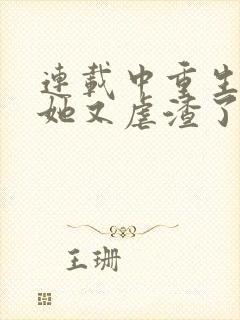 連載中重生
她又虐渣了
王珊